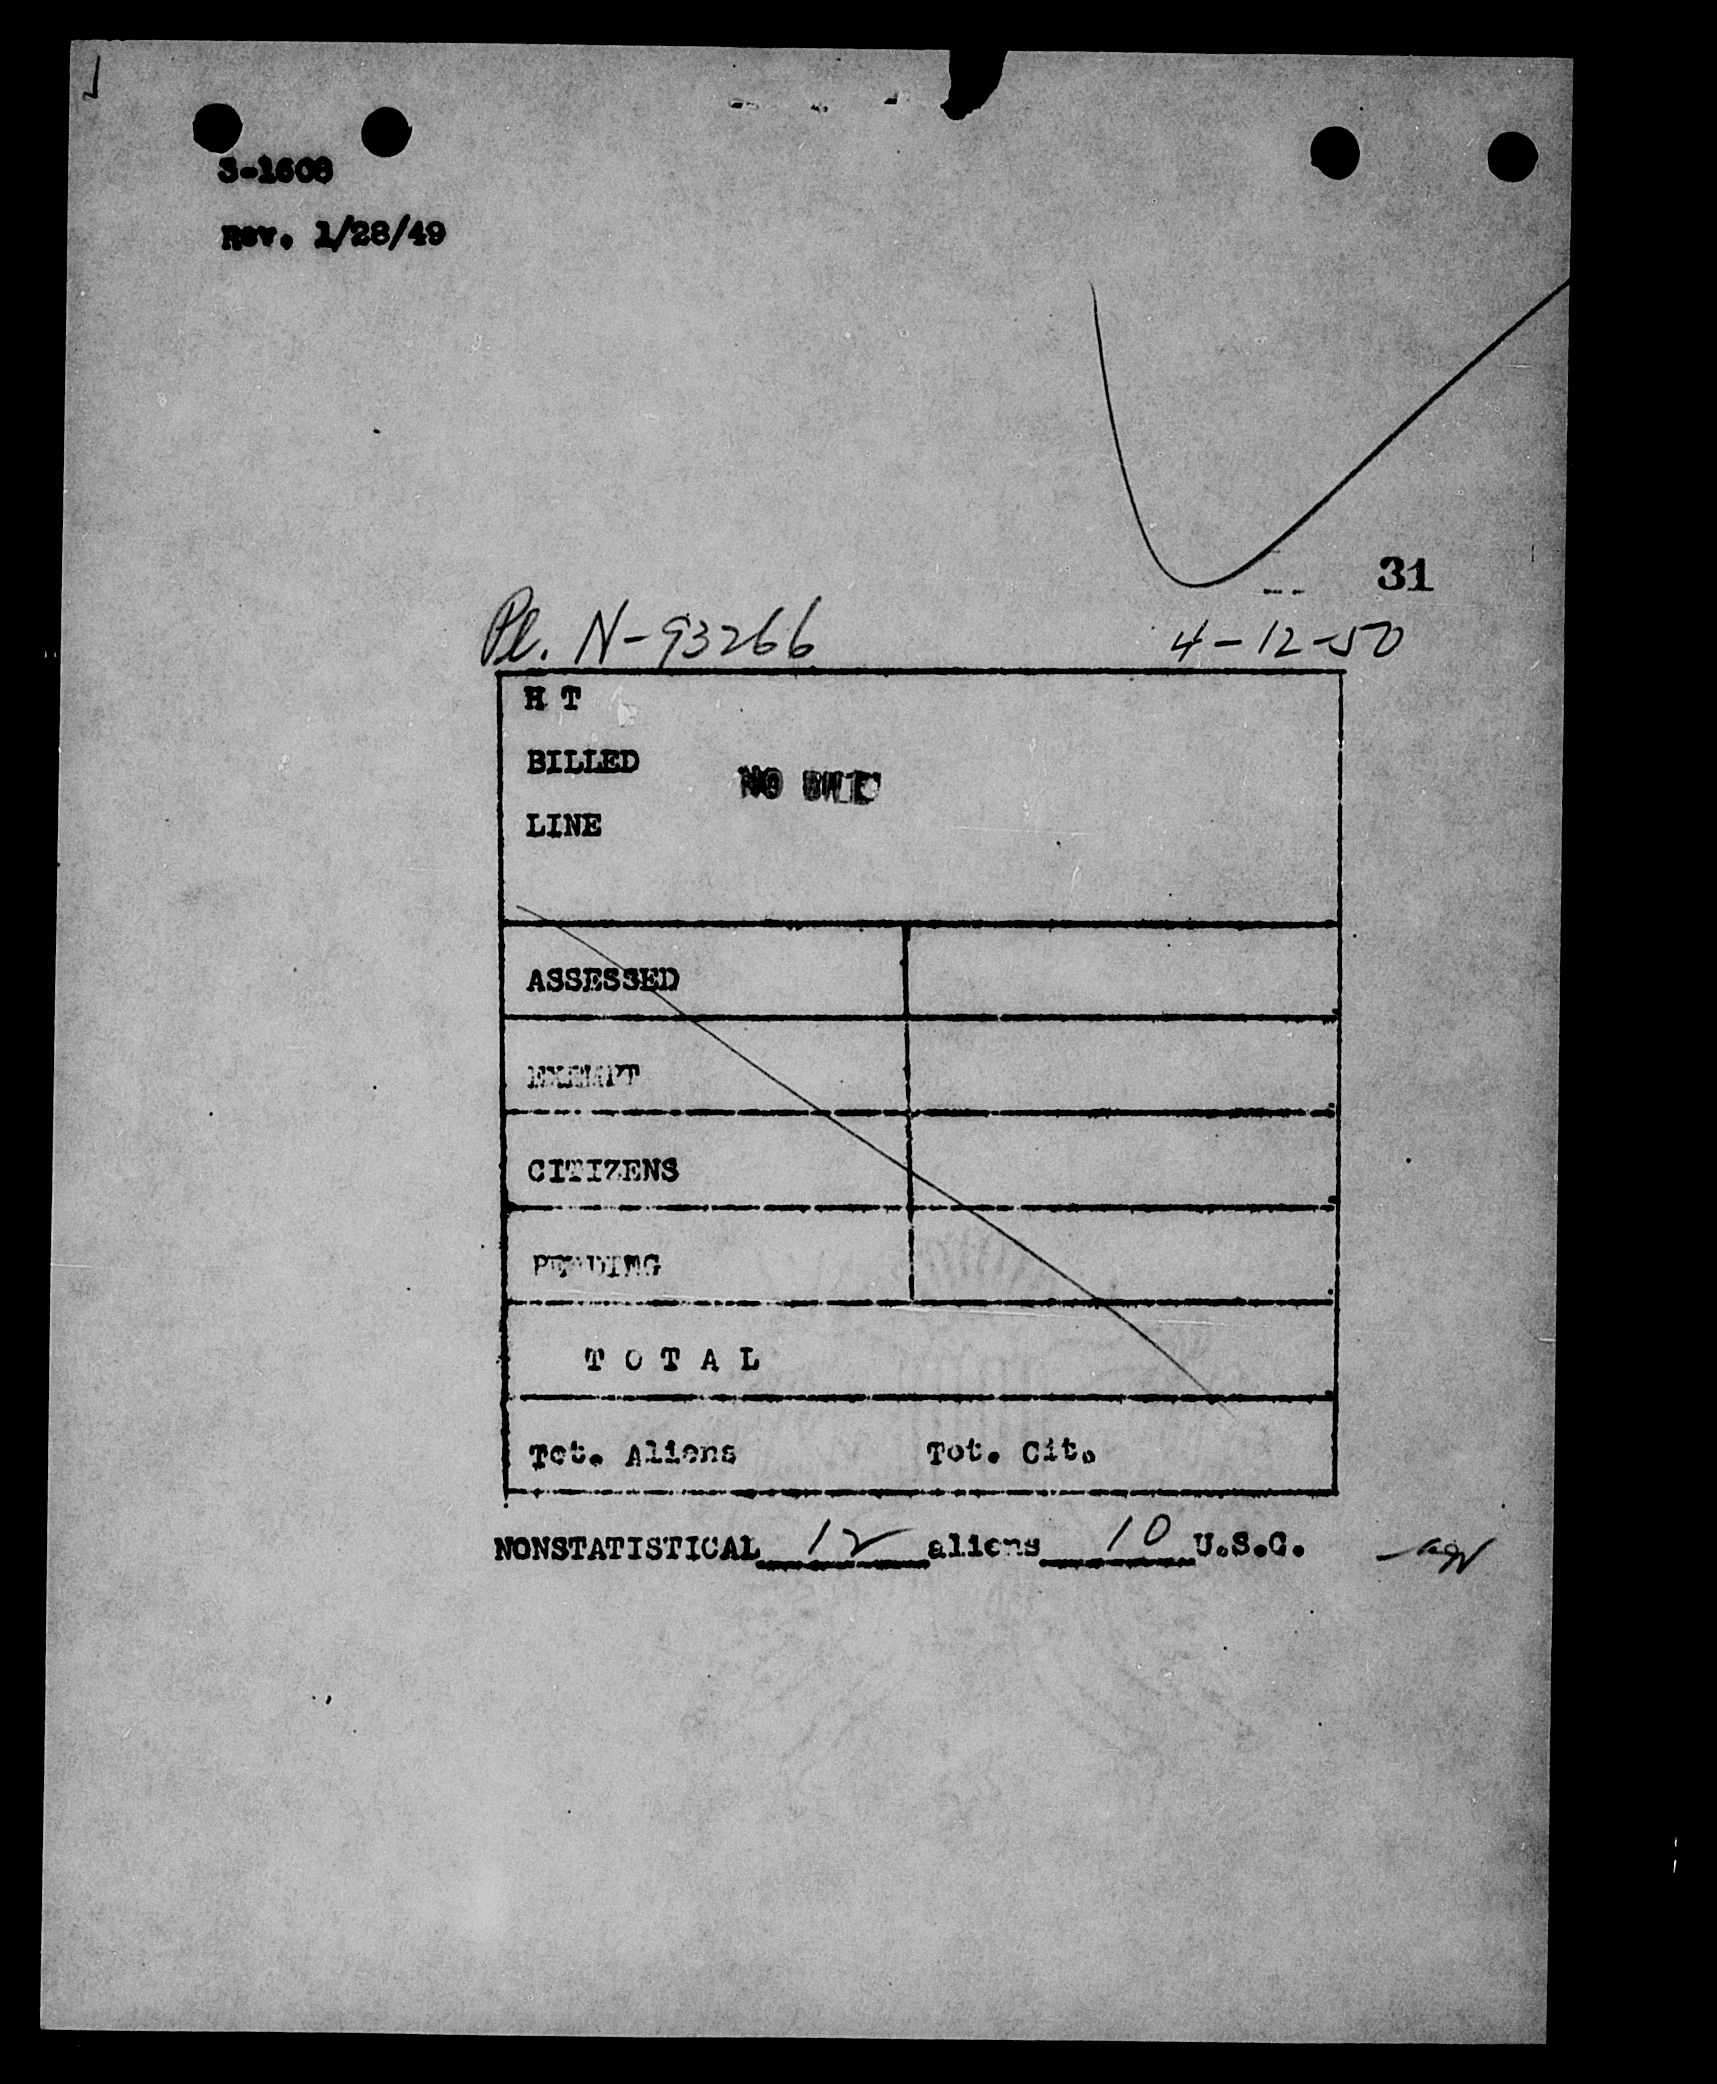 3-1608
Rev. 1/28/49
31
Pl. N-93266 4-12-50
H T
BILLED
NO
LINE
ASSESSED
EXEMPT
CITIZENS
PENDING
T O T A L
Tot. Aliens Tot. Cit.
NONSTATISTICAL 12 aliens 10 U.S.C.